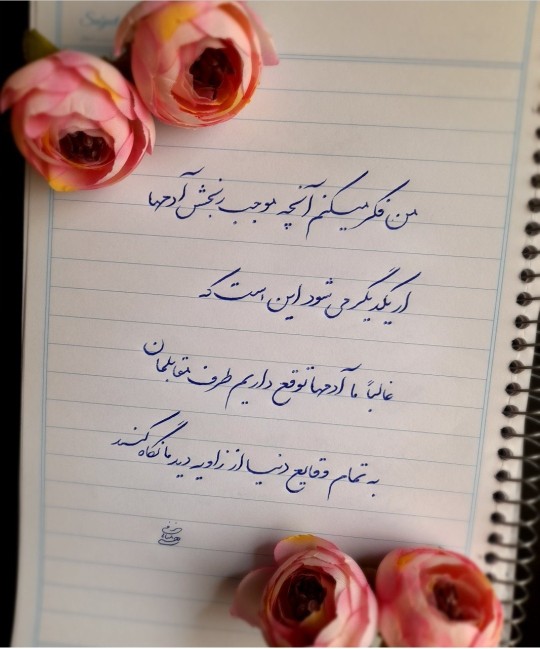 من فکر میکنم آنچه موجب رنجش آدمها
از یکدیگر می شود این است که
غالباً ما آدمها توقع داریم طرف مقابلمان
به تمام وقایع دنیا از زاویه دید ما نگاه کند